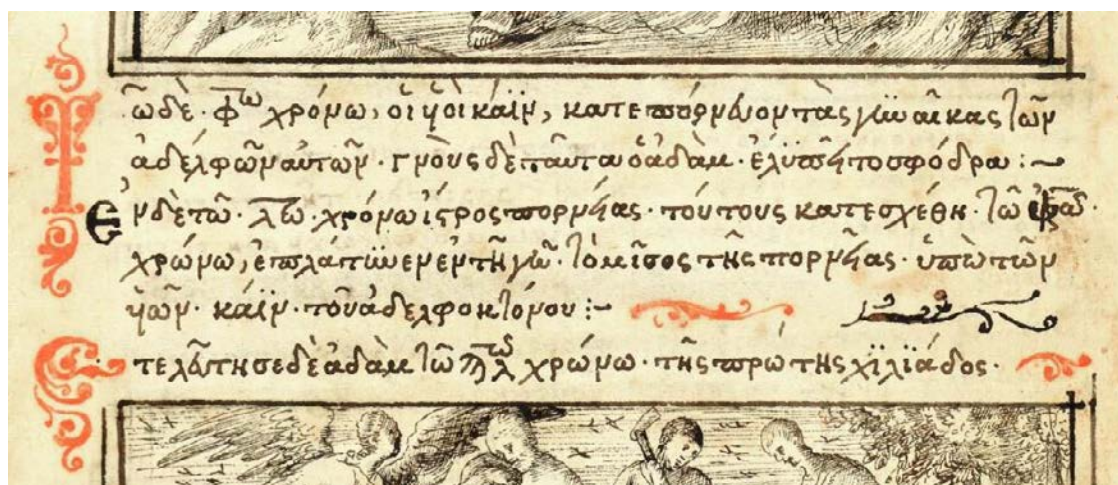 Τῶ δὲ · φ̅ω̅ χρόνω, οἱ ὑοὶ κάϊν, κατεπόρνευον τὰς γυναῖκας τῶν
ἀδελφῶν αὐτῶν · γνοὺς δὲ ταῦτα ὁ ἀδὰμ · ἐλυπεῖτο σφόδρα :~
Ἐν δὲ τῶ · λ̅ω̅ · χρόνω πορνείας · τούτους κατεσχέθη · τῶ
χρώνω, ἐπλάτϋνεν ἐν τῆ γῆ · τὸ μῖσος τῆς πορνείας · ὑπὸ τῶν
ὑῶν · κάϊν · τοῦ ἀδελφοκτόνου :~
Ἐτελεύτησε δὲ ἀδὰμ τῶ χρώνω · τῆς πρώτης χϊλϊάδος ·